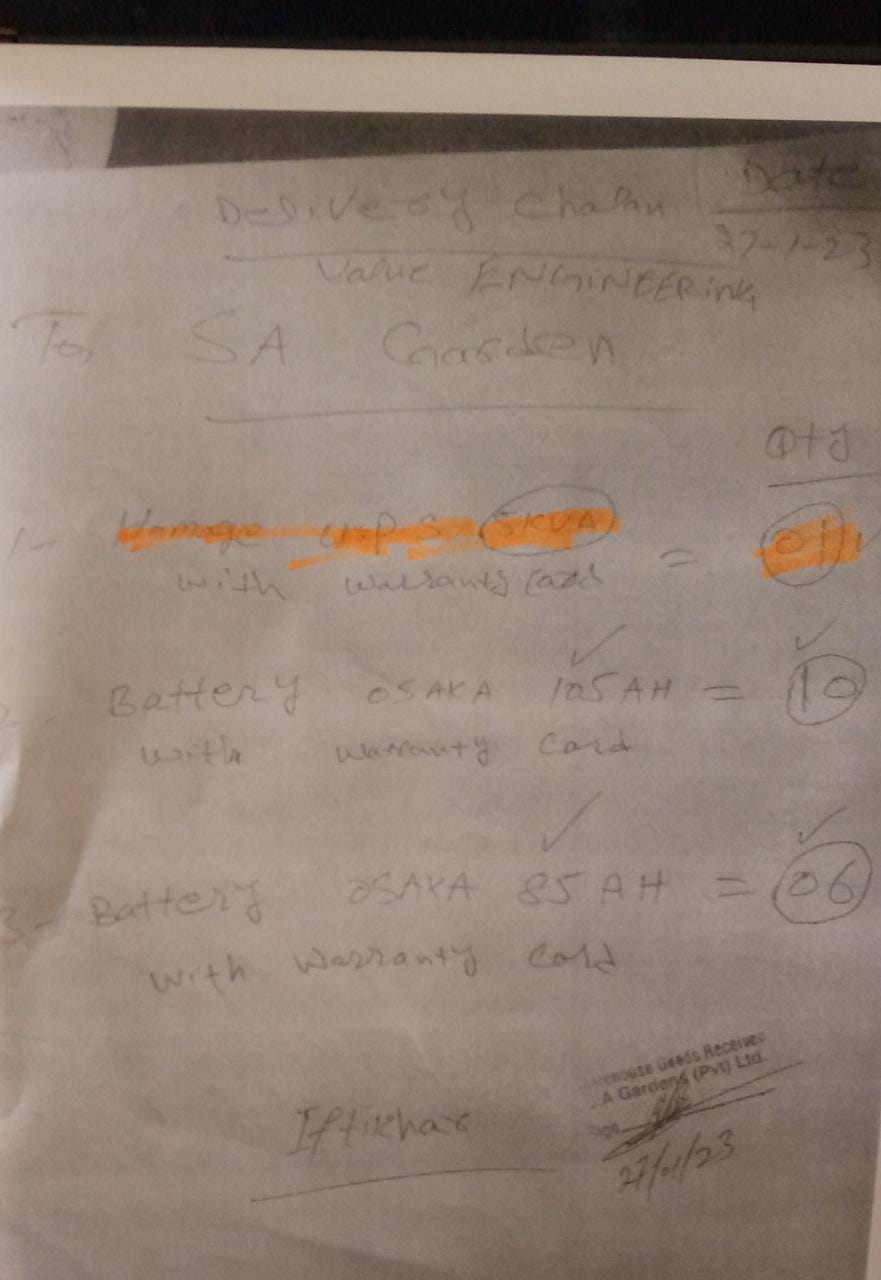 Delivery Chalan
Date
27-1-23
Value ENGINEERING
To, SA Garden
Qty
1- Homage U.P.S 5KVA = 01
with warranty card
2- Battery OSAKA 105 AH = 10
with warranty card
3- Battery OSAKA 85 AH = 06
with warranty card
Iftikhar
Warehouse Goods Received
A Gardens (Pvt) Ltd.
Sign
27/01/23